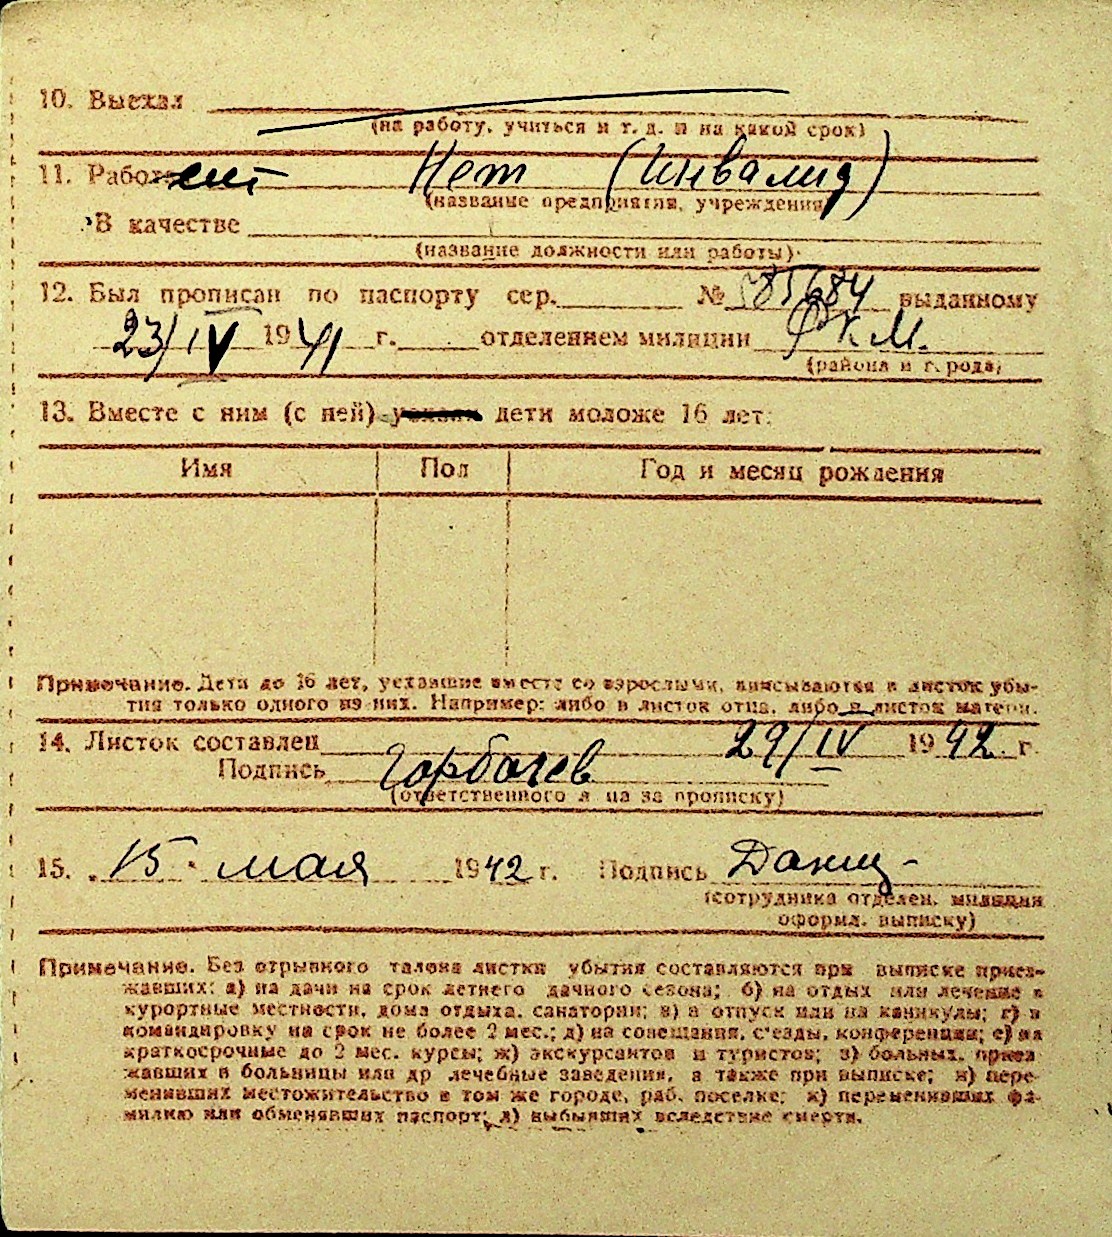 10. Выехал
(на работу, учиться и т. д. и на какой срок)
11. Работает Нет (Инвалид)
(название предприятия, учреждения)
В качестве
(название должности или работы).
12. Был прописан по паспорту сер. № 585684 выданному
23/IV 1941 г. отделением милиции РКМ.
(района и города)
13. Вместе с ним (с ней) дети моложе 16 лет:
Имя Пол Год и месяц рождения
Примечание. Дети до 16 лет, уехавшие вместе со взрослыми, вписываются в листок убы-
тия только одного из них. Например: либо в листок отца, либо в листок матери.
14. Листок составлен 29/IV 1942 г.
Подпись Горбачев
(ответственного л ца за прописку)
15. 15 мая 1942 г. Подпись
(сотрудника отделен. милиции
оформл. выписку)
Примечание. Без отрывного талона листки убытия составляются при выписке приез-
жавших: а) на дачи на срок летнего дачного сезона; б) на отдых или лечение в
курортные местности, дома отдыха, санатории; в) в отпуск или на каникулы; г) в
командировку на срок не более 2 мес.; д) на совещания, с'езды, конференции; е) на
краткосрочные до 2 мес. курсы; ж) экскурсантов и туристов; з) больных, приез
жавших в больницы или др лечебные заведения, а также при выписке; и) пере-
менивших местожительство в том же городе, раб. поселке; к) переменивших фа-
милию или обменявших паспорт; л) выбывших вследствие смерти.